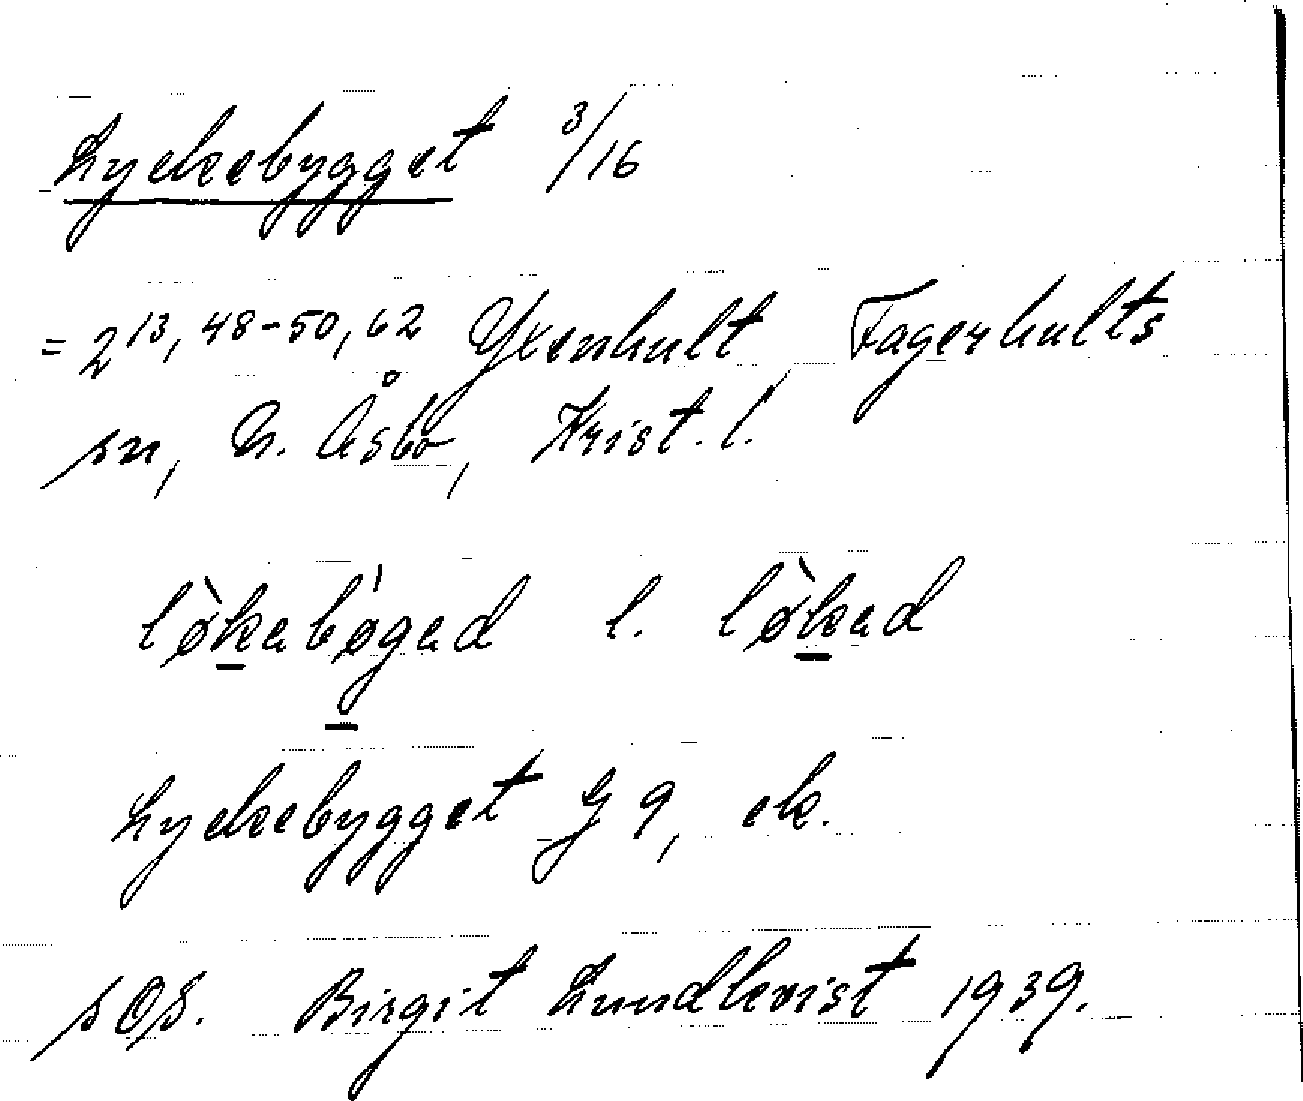 Lyckebygget 3/16
= 2 13, 48-50, 62 Yxenhult Fagerhults
sn, N. Åsbo, Krist. l.
lø̀kabø̍gad l. lø̀kad
Lyckebygget G 9, ek.
sOs. Birgit Lundkvist 1939.